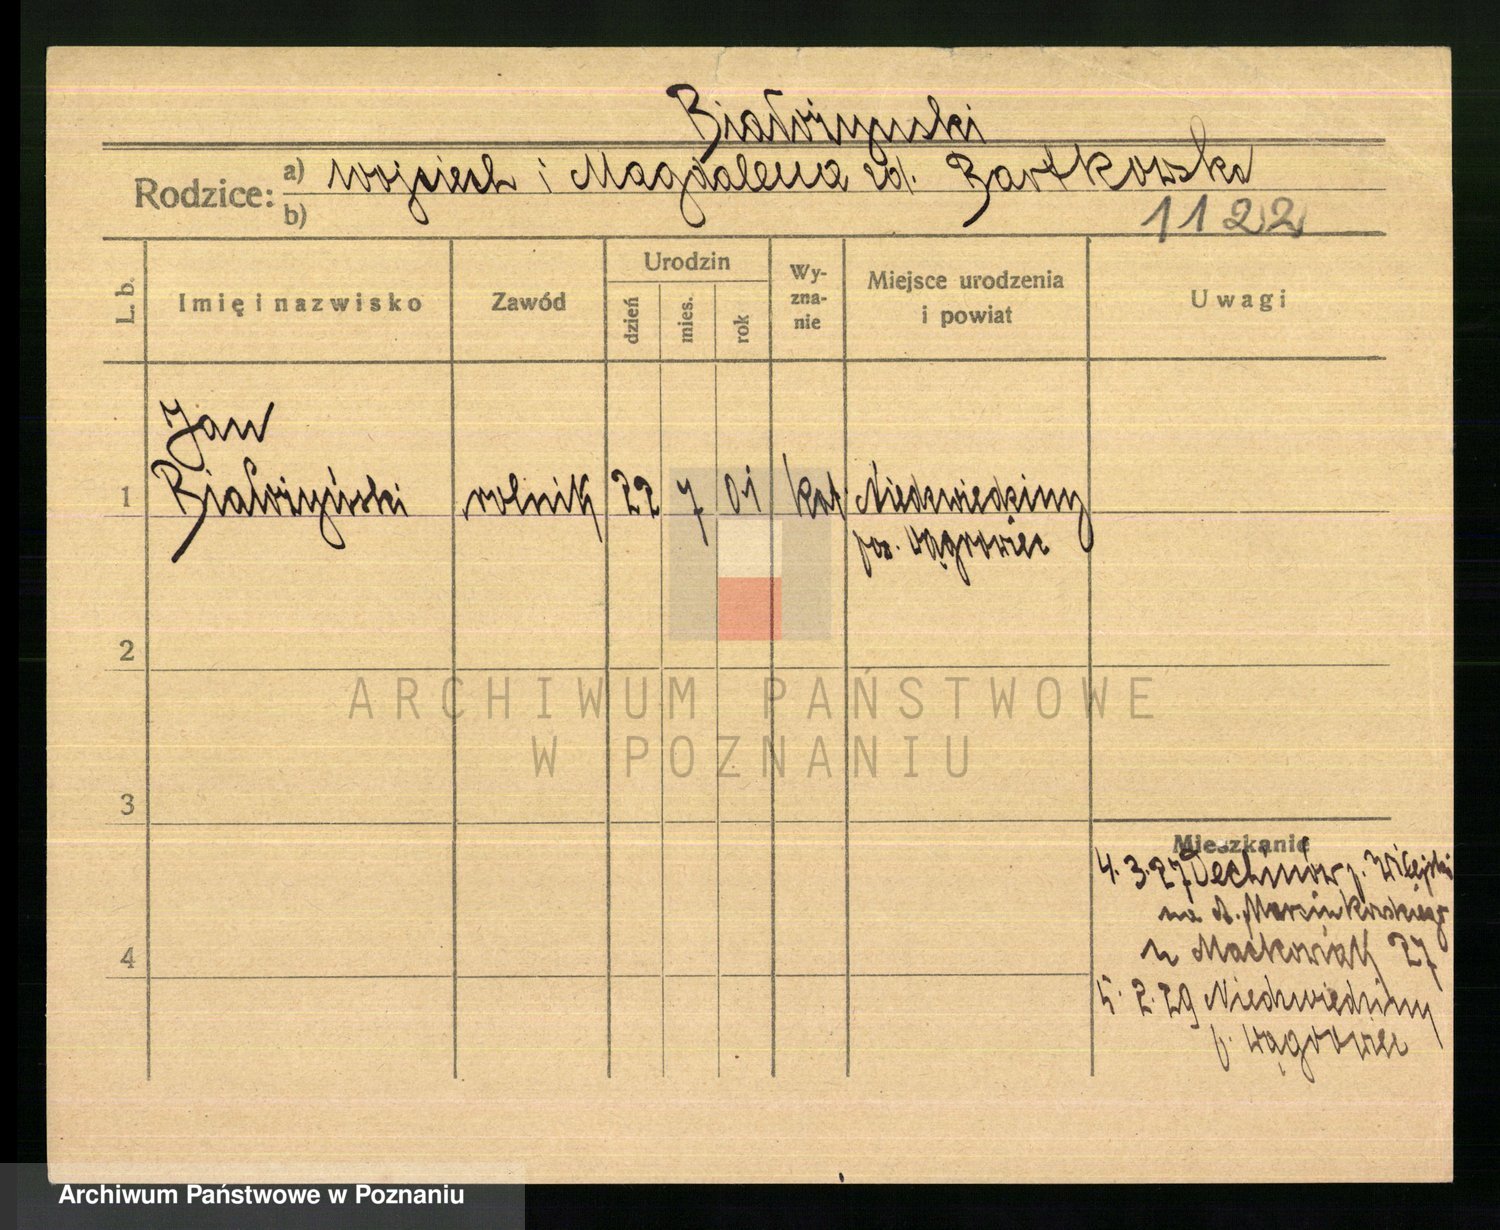 Białożyński
Rodzice: a) Wojciech i Magdalena zd. Bartkowska
b)
1122
L. b.
Imię i nazwisko
Zawód
Urodzin
dzień
mies.
rok
Wy-
zna-
nie
Miejsce urodzenia
i powiat
Uwagi
Jan
1 Białożyński rolnik 22 7 01 kat. Niedźwiedziny
pow. Wągrowiec
2
3
4
ARCHIWUM PAŃSTWOWE
W POZNANIU
Mieszkanie
4.3.27
na Marcinkowskiego
u Maćkowiak 27
5.2.29 Niedźwiedziny
p. Wągrowiec
Archiwum Państwowe w Poznaniu